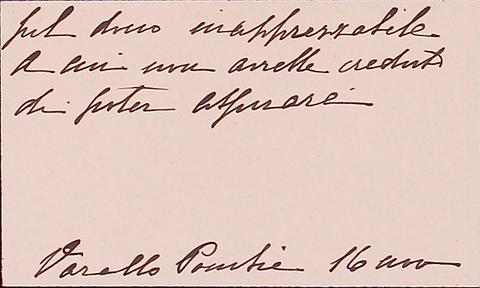 pel dono inapprezzabile
a cui non avrebbe creduto
di poter aspirare
Varallo Pombia 16 nov